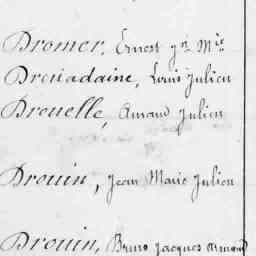 Dromer, Ernest Jn Mie
Drouadaine, Louis Julien
Drouelle, Amand Julien
Drouin, Jean Marie Julien
Drouin, Bruno Jacques Armand